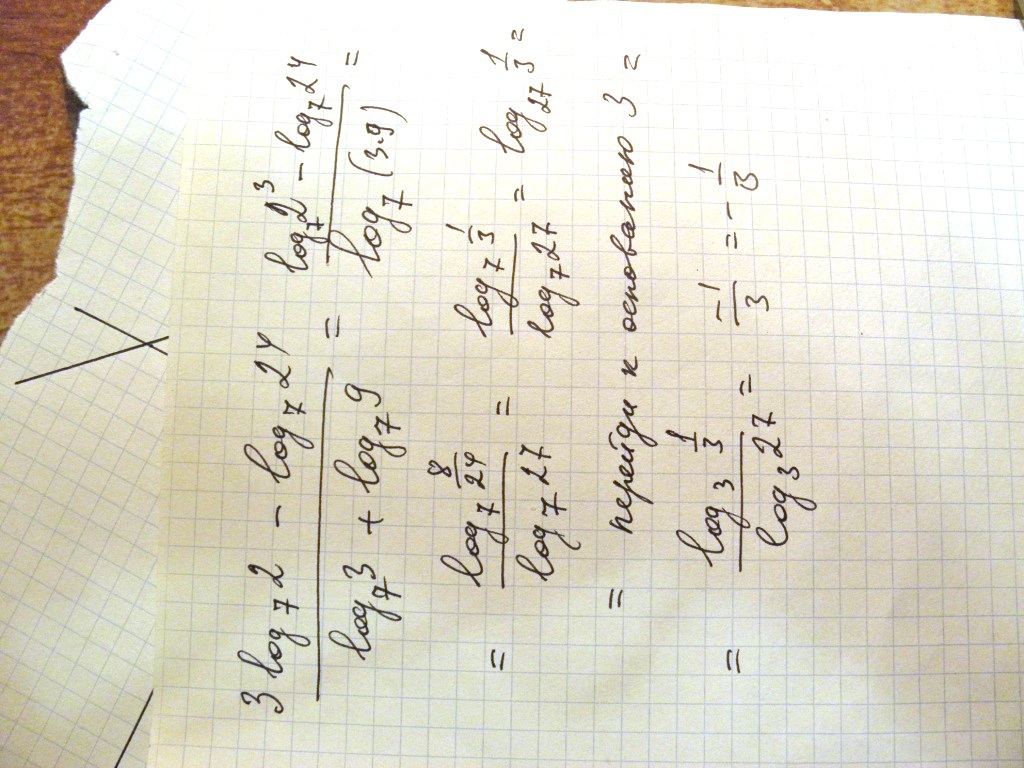 (3 log₇ 2 − log₇ 24) / (log₇ 3 + log₇ 9) = (log₇ 2³ − log₇ 24) / (log₇ (3·9)) =
= (log₇ 8/24) / (log₇ 27) = (log₇ 1/3) / (log₇ 27) = log₂₇ 1/3 =
= перейди к основанию 3 =
= (log₃ 1/3) / (log₃ 27) = −1/3 = −1/3